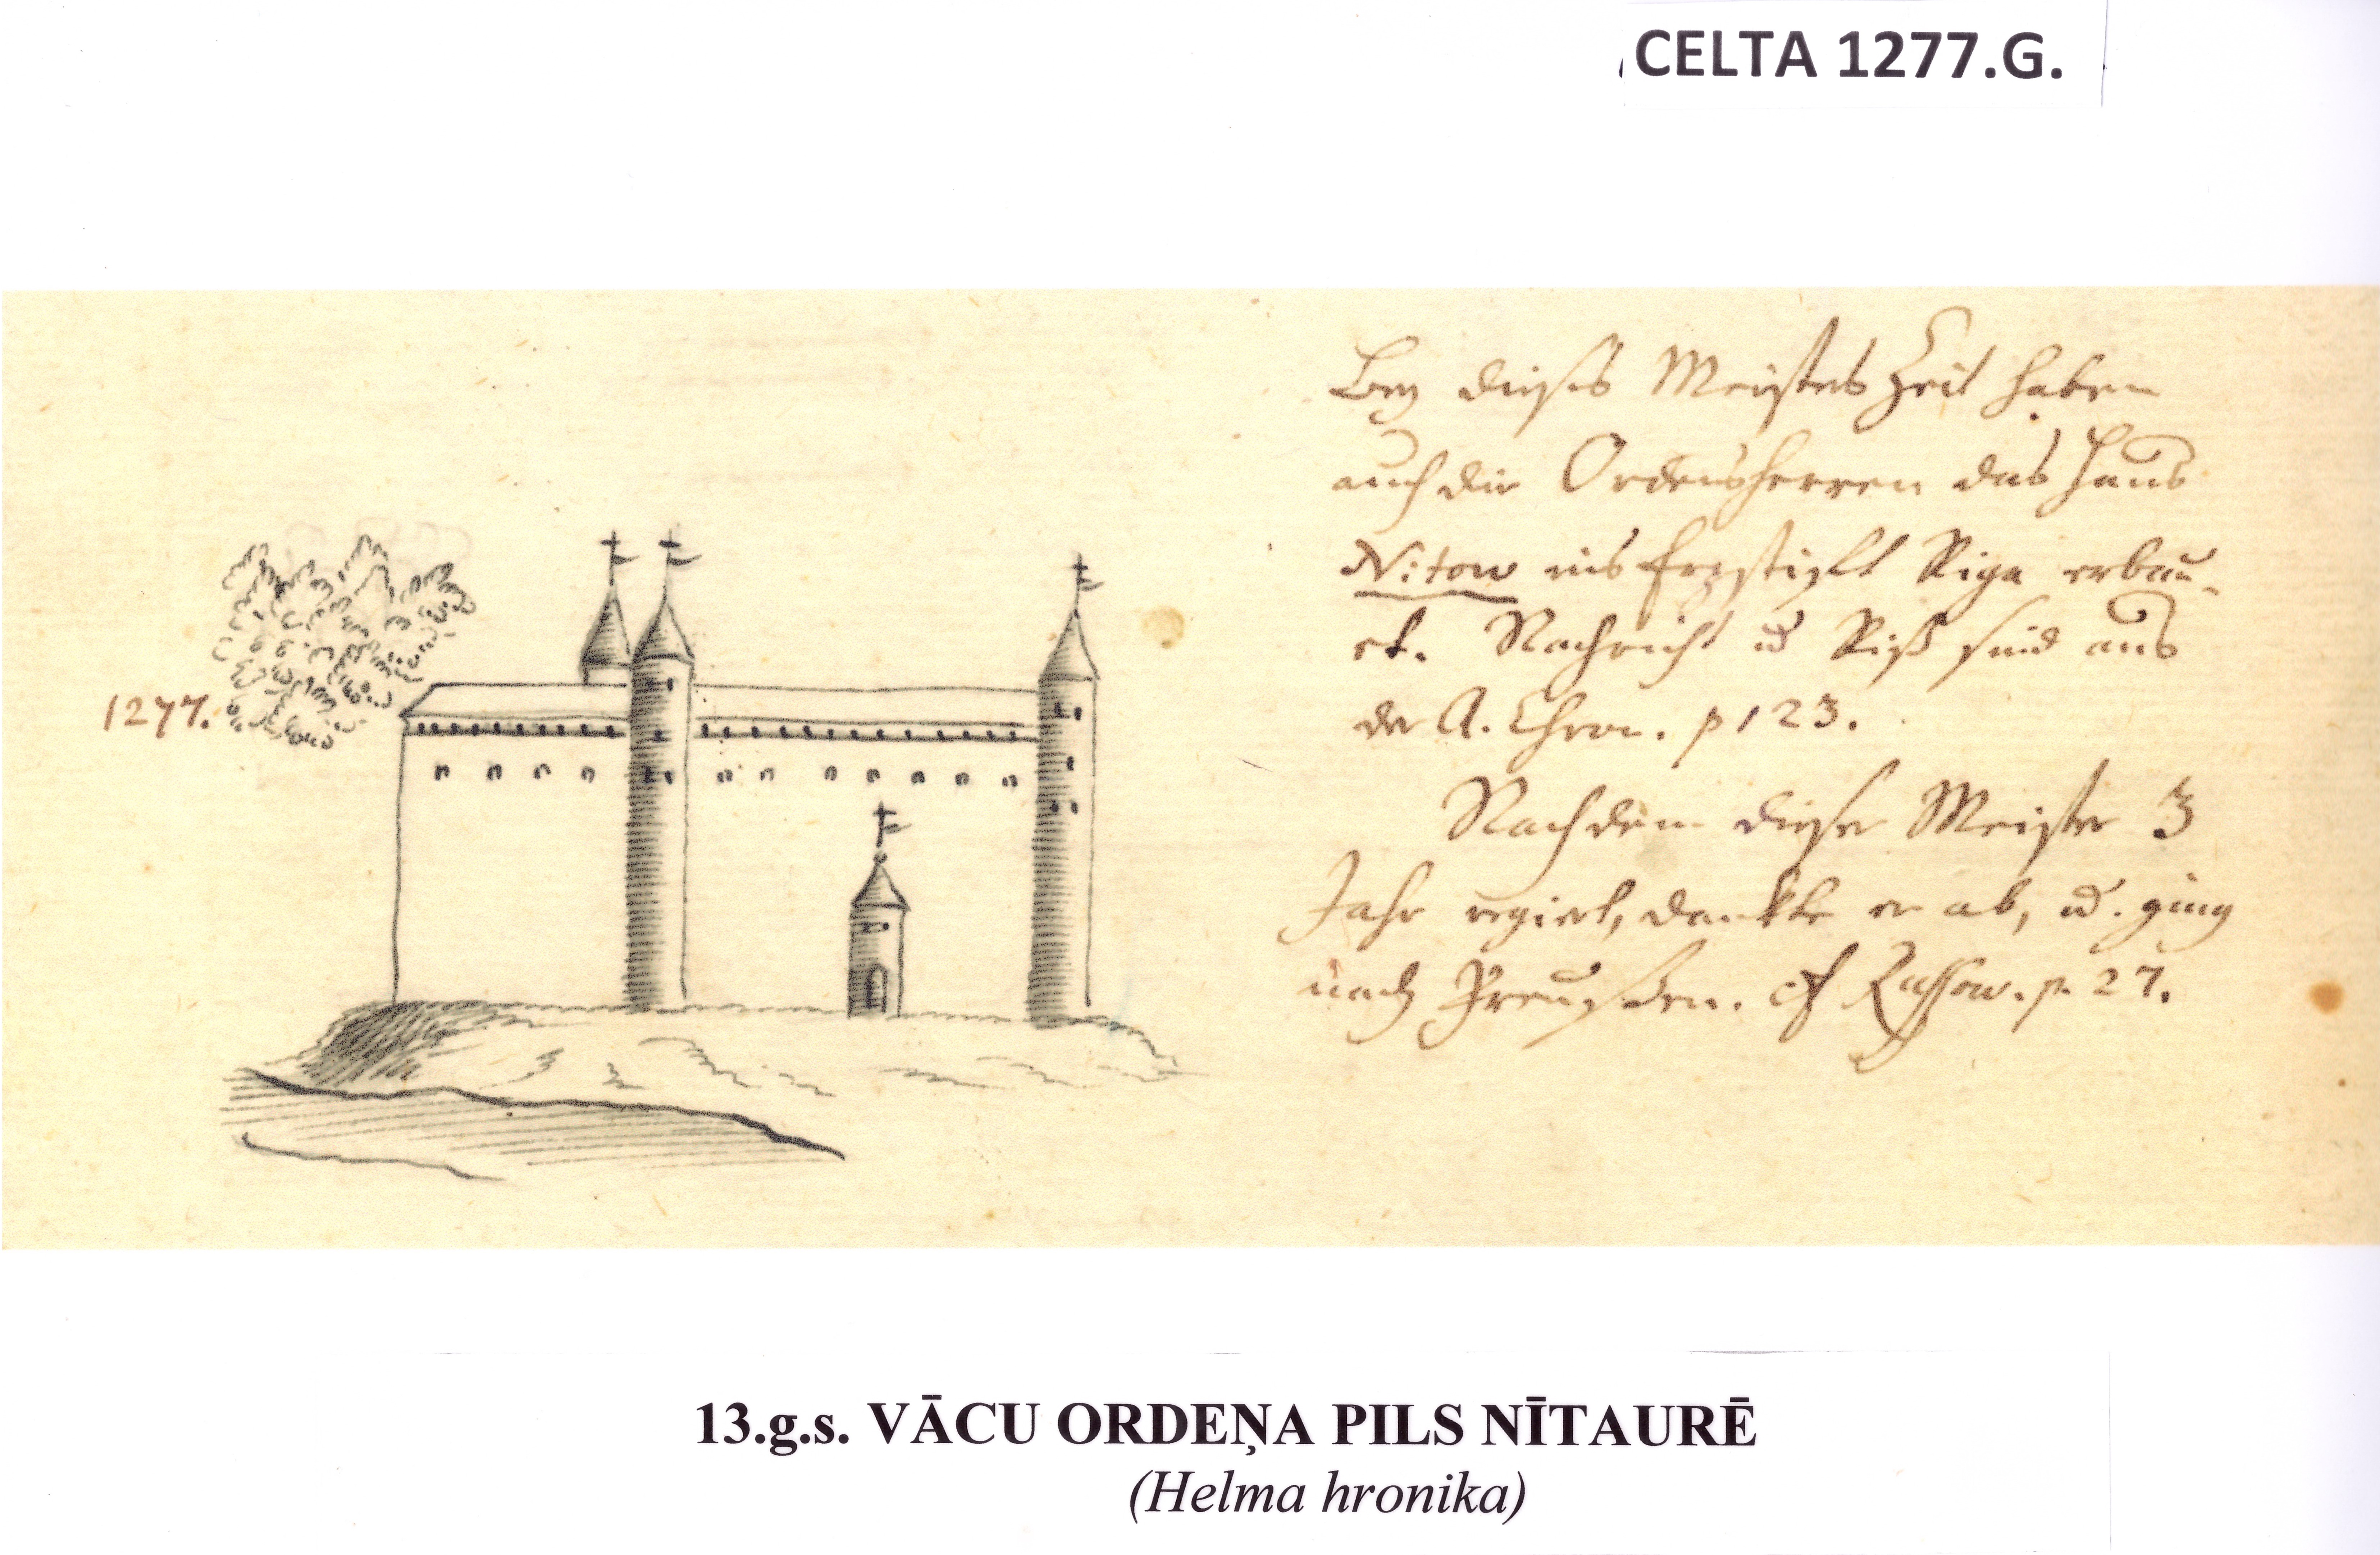 CELTA 1277.G.
1277.
Bey dieses Meisters Zeit haben
auch die Ordensherren das Haus
Nitow ins Erzstifft Riga erbau-
et. Nachricht u Riß sind aus
der A. Chron. p 123.
Nachdem dieser Meister 3
Jahr regiert, dankte er ab, u. ging
nach Preußen. cf Russow. p. 27.
13.g.s. VĀCU ORDEŅA PILS NĪTAURĒ
(Helma hronika)